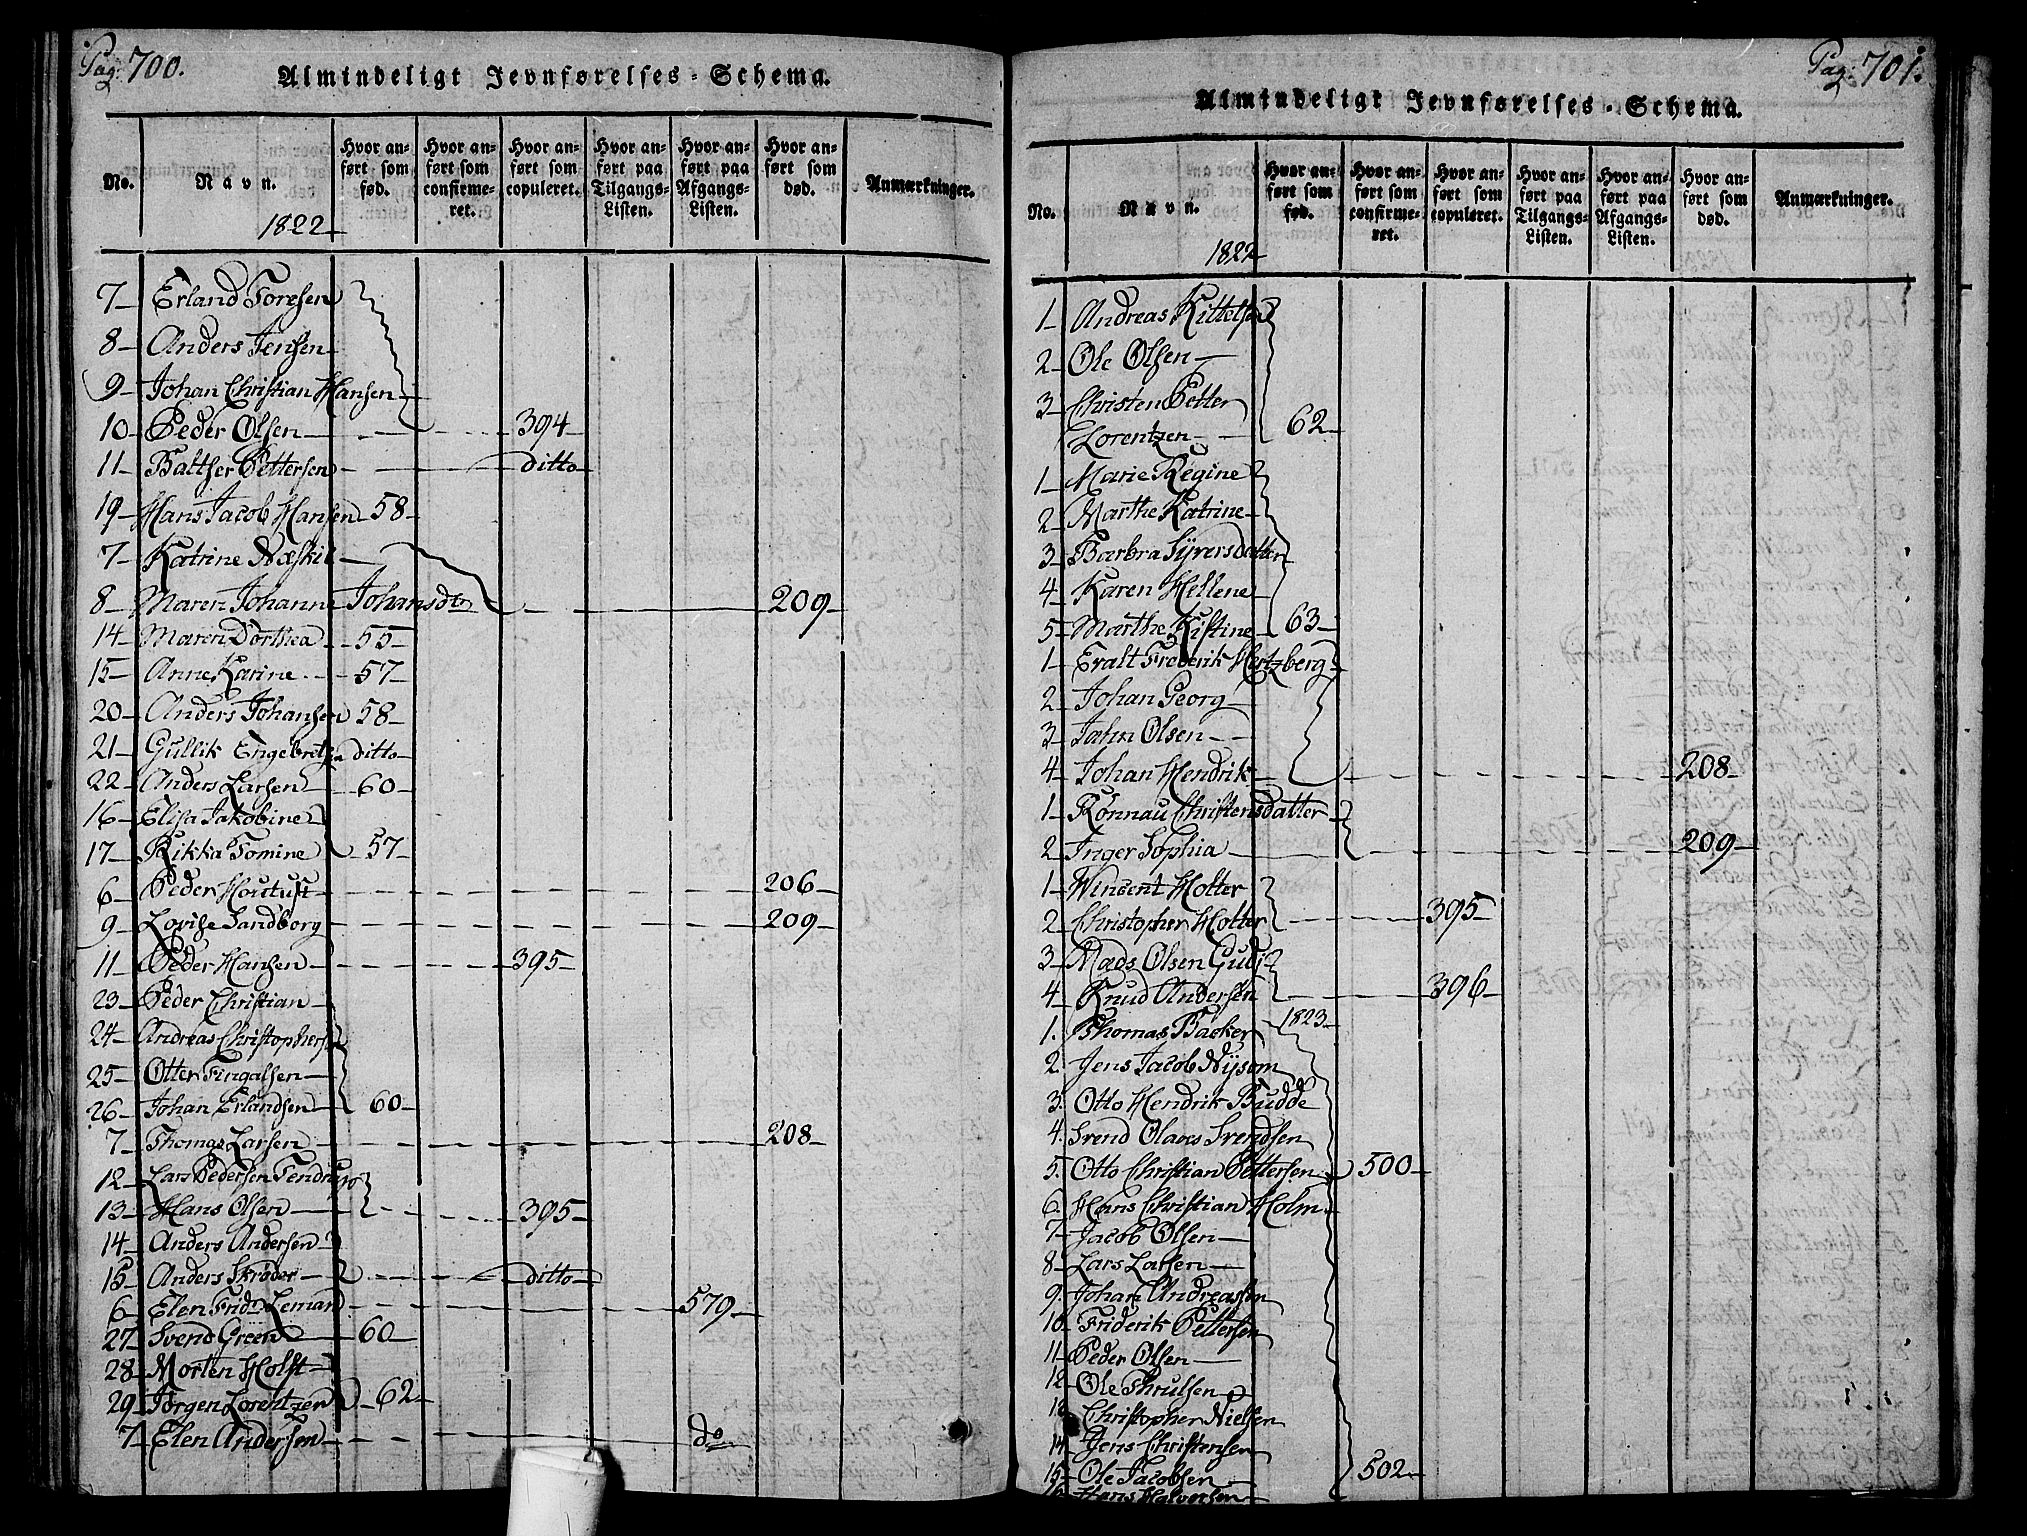 Pag: 700.
Almindeligt Jevnførelses-Schema.
No.
Navn.
Hvor anført som fød.
Hvor anført som confirmeret.
Hvor anført som copuleret.
Hvor anført paa Tilgangs-Listen.
Hvor anført paa Afgangs-Listen.
Hvor anført som død.
Anmærkninger.
1822
7 Erland Toresen
8 Anders Jensen
9 Johan Christian Hansen
10 Peder Olsen 394
11 Baltser Pettersen ditto
19 Hans Jacob Hansen 58
7 Katrine Næskil
8 Maren Johanne Johansdt 209
14 Maren Dorthea 55
15 Anne Karine 57
20 Anders Johansen 58
21 Gullik Engebretzn ditto
22 Anders Larsen 60
16 Elisa Jakobine
17 Rikka Tomine 57
6 Peder Houtust 206
9 Lovise Sandborg 209
11 Peder Hansen 395
23 Peder Christian
24 Andreas Christophersn
25 Otter Fingalsen
26 Johan Erlandsen 60
7 Thomas Larsen 208
12 Lars Pedersen Tendrup
13 Hans Olsen 395
14 Anders Andersen
15 Anders Skrøder ditto
6 Elen Frid: Leman 579
27 Svend Green 60
28 Morten Holst
29 Jørgen Lorentzen 62
7 Elen Andersen do
Pag: 701.
Almindeligt Jevnførelses-Schema.
No.
Navn.
Hvor anført som fød.
Hvor anført som confirmeret.
Hvor anført som copuleret.
Hvor anført paa Tilgangs-Listen.
Hvor anført paa Afgangs-Listen.
Hvor anført som død.
Anmærkninger.
1822
1 Andreas Kittelsn
2 Ole Olsen
3 Christen Petter
Lorentzen 62
1 Marie Regine
2 Marthe Katrine
3 Barbra Syversdatter
4 Karen Hellene
5 Marthe Kistine 63
1 Evalt Frederik Hertzberg
2 Johan Georg
3 John Olsen
4 Johan Hendrik 208
1 Rønnau Christensdatter
2 Inger Sophia 209
1 Wincent Hotter
2 Christopher Hotter 395
3 Mads Olsen Gudj
4 Knud Andersen 396
1823
1. Thomas Backer
2. Jens Jacob Nysom
3. Otto Hendrik Budde
4. Svend Olaves Svendsen
5. Otto Christian Pettersen 500
6. Hans Christian Holm
7 Jacob Olsen
8 Lars Larsen
9. Johan Andreassen
10 Friderik Pettersen
11 Peder Olsen
12 Ole Thrulsen
13 Christopher Nielsen
14 Jens Christensen
15 Ole Jacobsen 502
16 Hans Halvorsen